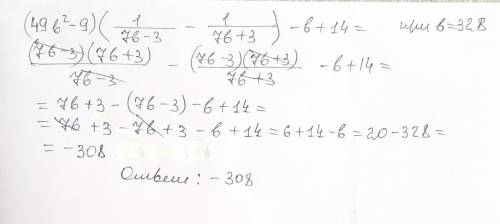 (49b²-9)(1/(7b-3) - 1/(7b+3)) - b+14= при b=328
(7b-3)(7b+3)/(7b-3) - (7b-3)(7b+3)/(7b+3) - b+14=
= 7b+3-(7b-3)-b+14=
= 7b+3-7b+3-b+14=6+14-b=20-328=
= -308
Ответ: -308